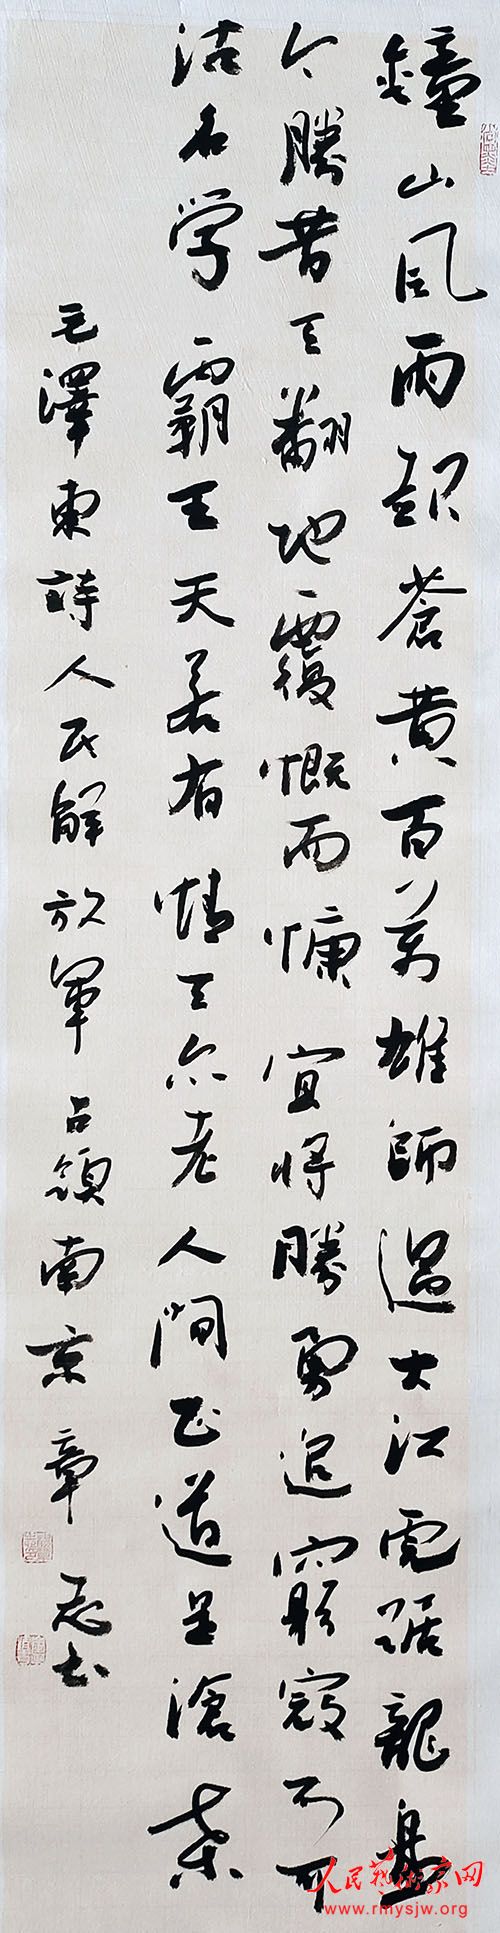 鐘山风雨起蒼黄百萬雄師過大江虎踞龍盤
今勝昔天翻地覆慨而慷宜将勝勇追窮寇不可
沽名学霸王天若有情天亦老人間正道是滄桑
毛澤東詩人民解放軍占領南京 章志书
人民藝術家网
www.rmysjw.org